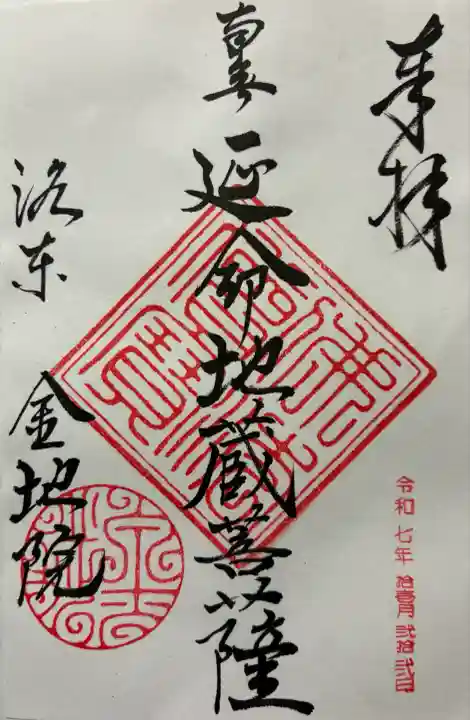 奉拝
令和七年拾壹月弐拾弐日
南無延命地蔵菩薩
洛東
金地院